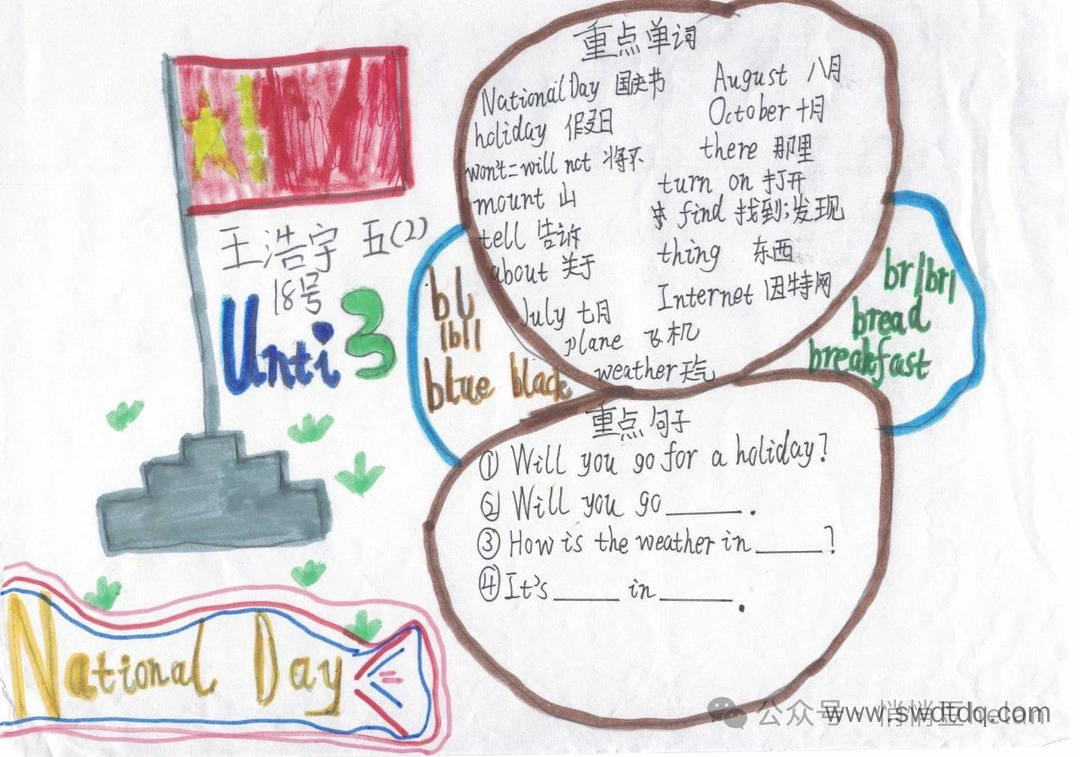 重点单词
National Day 国庆节
holiday 假日
won't=will not 将不
mount 山
tell 告诉
about 关于
July 七月
plane 飞机
weather 天气
August 八月
October 十月
there 那里
turn on 打开
find 找到;发现
thing 东西
Internet 因特网
王浩宇 五(2)
18号
Unti 3
bl
/bl/
blue black
br/br/
bread
breakfast
重点句子
① Will you go for a holiday?
② Will you go______.
③ How is the weather in______?
④ It's______ in______.
National Day
公众号
www.swdtdq.com